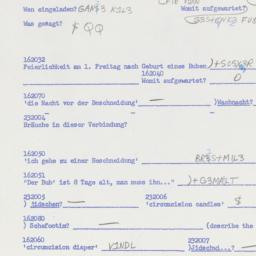 Wen eingeladen? GAN$3 K1L3
Womit aufgewartet?
Was gesagt? $ QQ
162032
Feierlichkeit am 1. Freitag nach Geburt eines Buben
162040
Womit aufgewartet? 0
162070
'die Nacht vor der Beschneidung' — )Wachnacht?
232004
Bräuche in dieser Verbindung?
162050
'ich gehe zu einer Beschneidung' BR8S+M1L3
162051
"Der Bub' ist 8 Tage alt, man muss ihn..." )+G3MALT
232005
) Jidschen? —
232006
'circumcision candles' $
162080
) Schafootim? — (describe the
162060
'circumcision diaper' V1NDL
232007
)Jidschd...? —